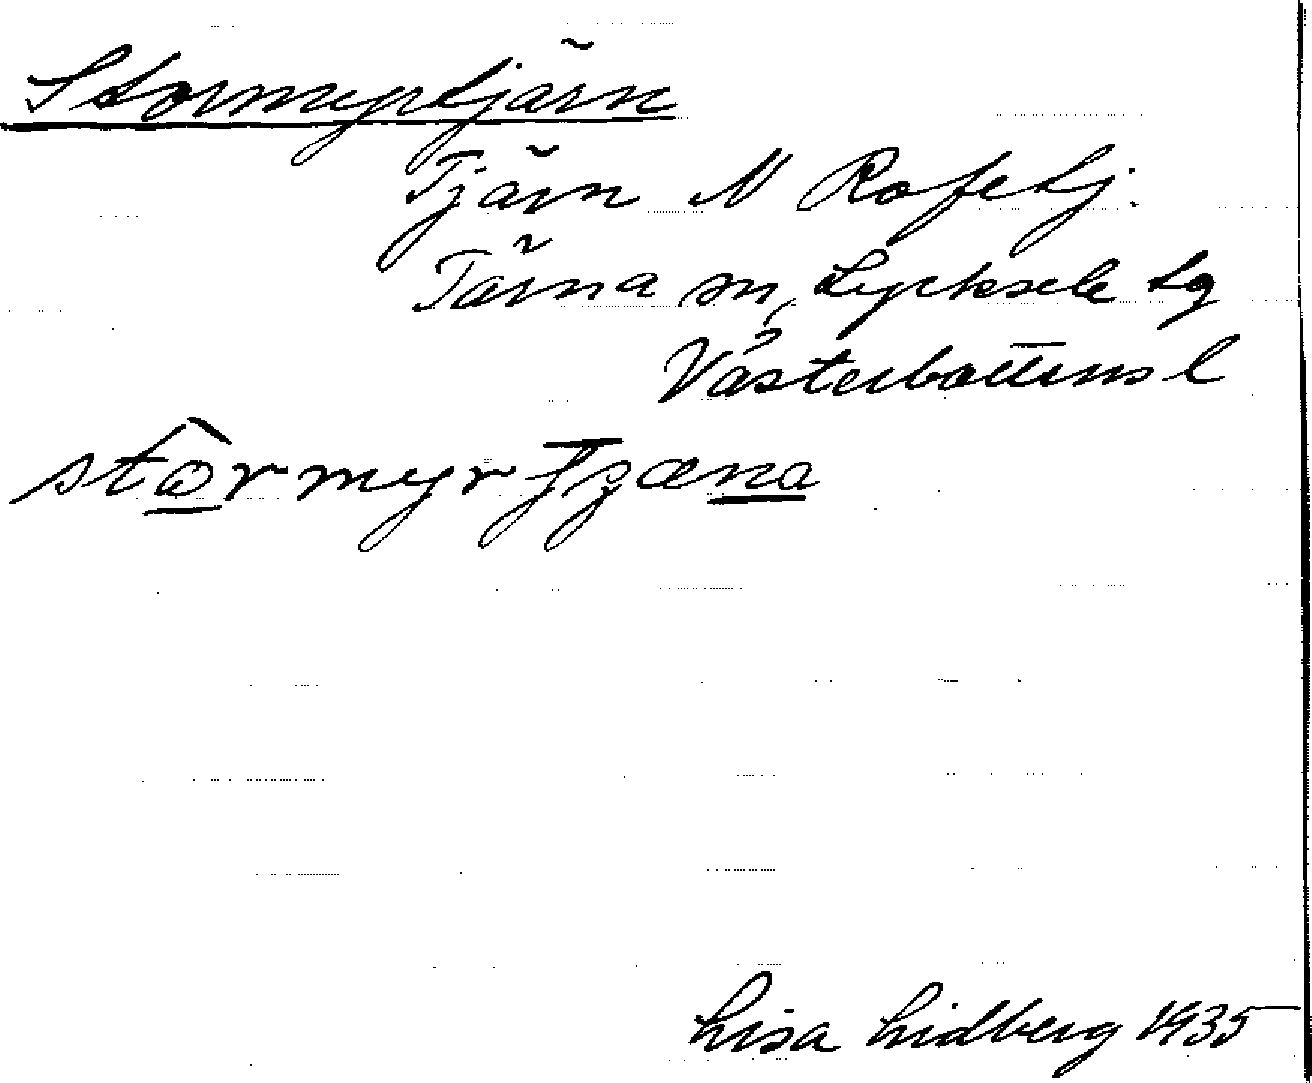 Stormyrtjärn
Tjärn N Rofetj.
Tärna sn, Lycksele lg
Västerbottens l
Lisa Lidberg 1935